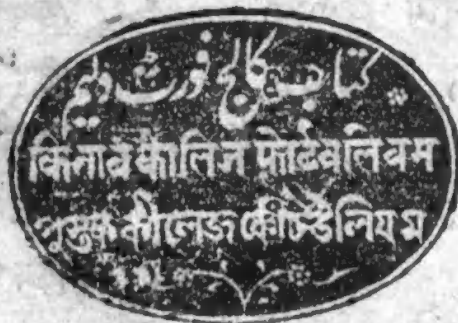 کتاب کالج فورٹ ولیم
किताब कालिज फोर्ट वलियम
पुस्तक कौलेज फोर्ट उलियम